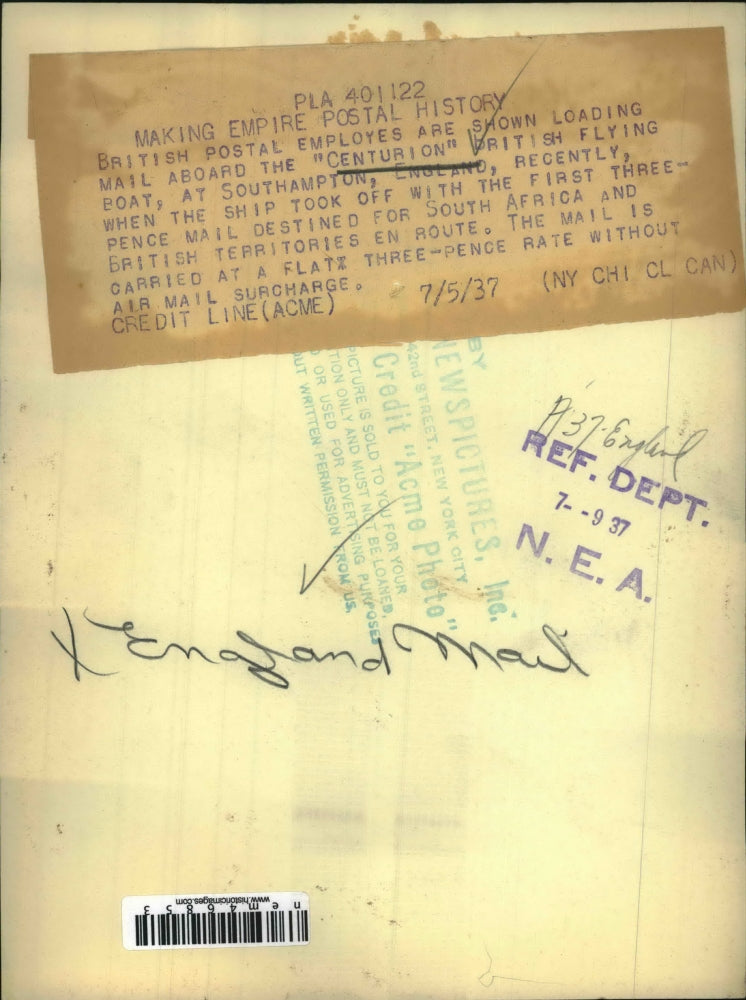 PLA 401122
MAKING EMPIRE POSTAL HISTORY
BRITISH POSTAL EMPLOYES ARE SHOWN LOADING
MAIL ABOARD THE "CENTURION" BRITISH FLYING
BOAT, AT SOUTHAMPTON, ENGLAND, RECENTLY,
WHEN THE SHIP TOOK OFF WITH THE FIRST THREE-
PENCE MAIL DESTINED FOR SOUTH AFRICA AND
BRITISH TERRITORIES EN ROUTE. THE MAIL IS
CARRIED AT A FLAT% THREE-PENCE RATE WITHOUT
AIR MAIL SURCHARGE.
CREDIT LINE(ACME) 7/5/37 (NY CHI CL CAN)
BY
NEWSPICTURES, Inc.
42nd STREET, NEW YORK CITY
Credit "Acme Photo"
PICTURE IS SOLD TO YOU FOR YOUR
TION ONLY AND MUST NOT BE LOANED,
OR USED FOR ADVERTISING PURPOSES
OUT WRITTEN PERMISSION FROM US.
A37-England
REF. DEPT.
7--9 37
N. E. A.
X England Mail
www.historicimages.com
nem46853